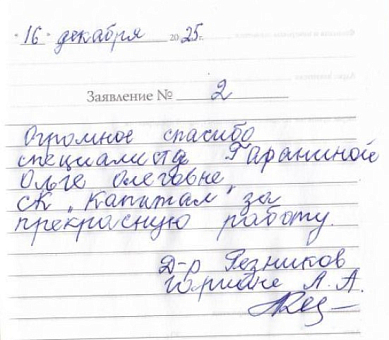 "16" декабря 2025
Заявление № 2
Огромное спасибо
специалисту Гараниной
Ольге Олеговне
СК „Капитал" за
прекрасную работу.
Д-р Резников
Л. А.